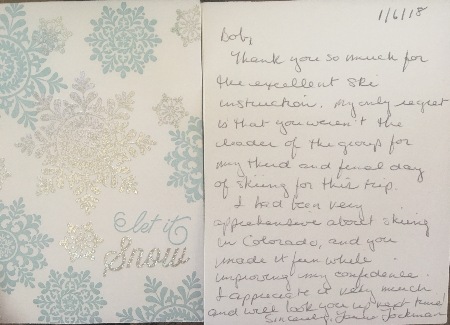 let it
Snow
1/6/18
Bob,
Thank you so much for
the excellent ski
instruction. My only regret
is that you weren't the
leader of the group for
my third and final day
of skiing for this trip.
I had been very
apprehensive about skiing
in Colorado, and you
made it fun while
improving my confidence.
I appreciate it very much
and will look you up next time!
Sincerely,